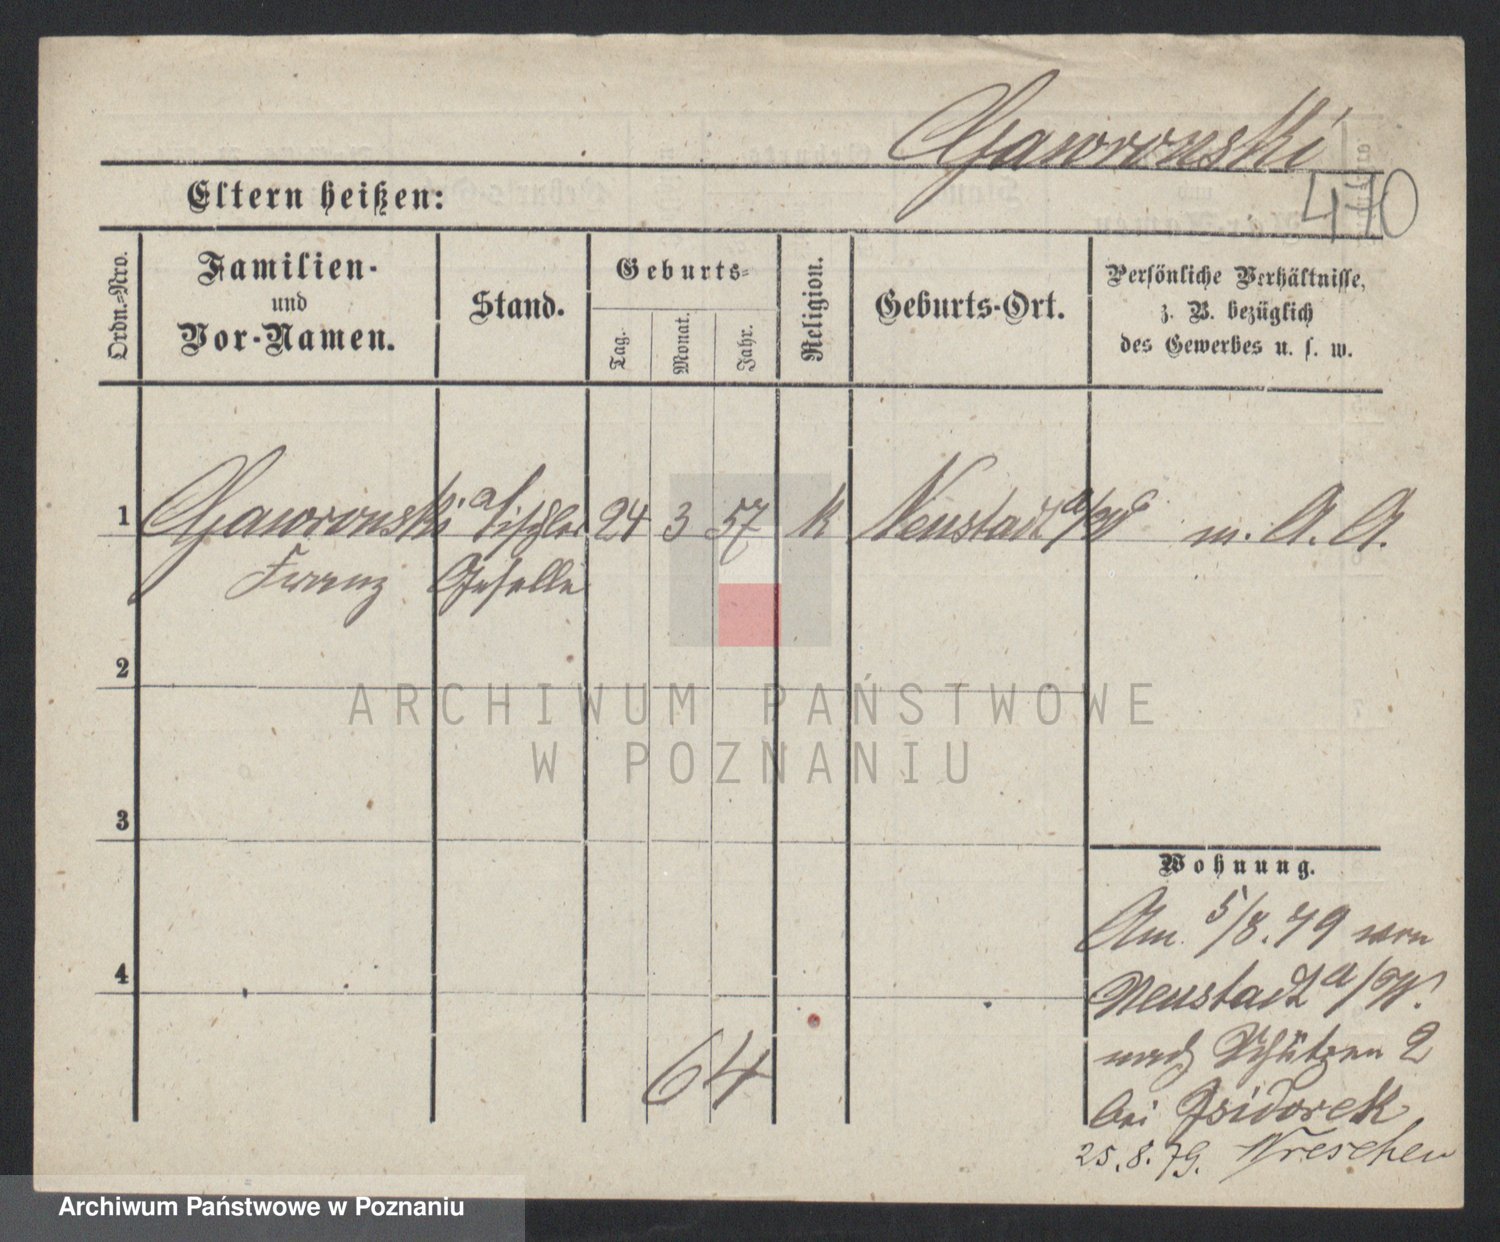 Gawronski
470
Eltern heißen:
Ordn.-Nro.
Familien-
und
Vor-Namen.
Stand.
Geburts-
Tag.
Monat.
Jahr.
Religion.
Geburts-Ort.
Persönliche Verhältnisse,
z. B. bezüglich
des Gewerbes u. s. w.
1 Gawronski Tischler 24 3 57 k Neustadt a/W m. A. A.
Franz Geselle
2
3
4
64
Wohnung.
Am 5/8.79 von
Neustadt a/W.
nach Schützen 2
bei Isidorek
25.8.79. Wreschen
ARCHIWUM PAŃSTWOWE
W POZNANIU
Archiwum Państwowe w Poznaniu